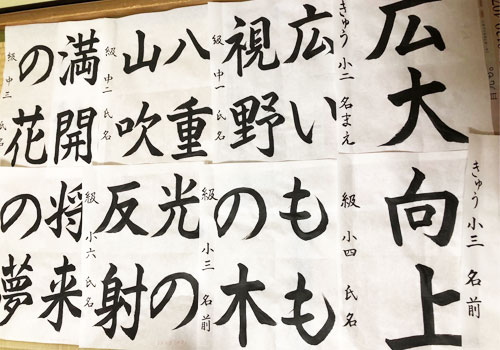 広大
きゅう 小二 名まえ
広い
視野
級 中一 氏名
八重
山吹
級 中二 氏名
満開
の花
級 中三 氏名
きゅう 小三 名前
向上
級 小四 氏名
もも
の木
級 小三 名前
光の
反射
級 小六 氏名
将来
の夢